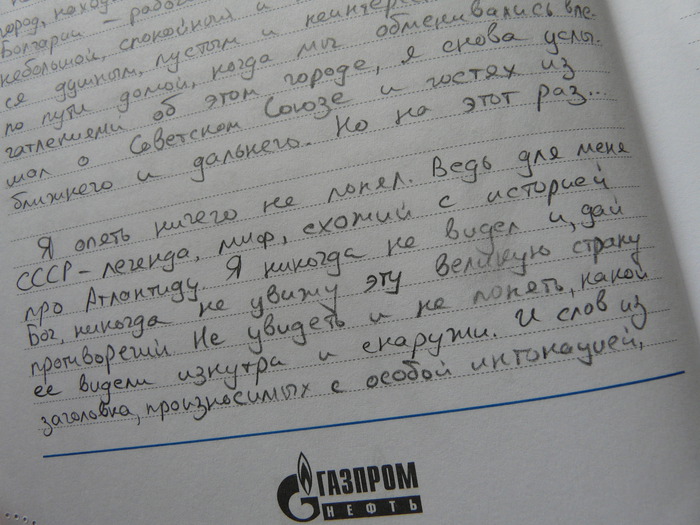 город, наход
Болгарии – рабо
небольшой, спокойный и
се душным, пустым и неинтер
по пути домой, когда мы обменивались впе-
чатлениями об этом городе, я снова услы-
шал о Советском Союзе и гостях из
ближнего и дальнего. Но на этот раз...
Я опять ничего не понял. Ведь для меня
СССР – легенда, миф, схожий с историей
про Атлантиду. Я никогда не видел и, дай
Бог, никогда не увижу эту великую страну
противоречий. Не увидеть и не понять, какой
ее видели изнутра и снаружи. И слов из
заголовка, произносимых с особой интонацией,
ГАЗПРОМ
НЕФТЬ